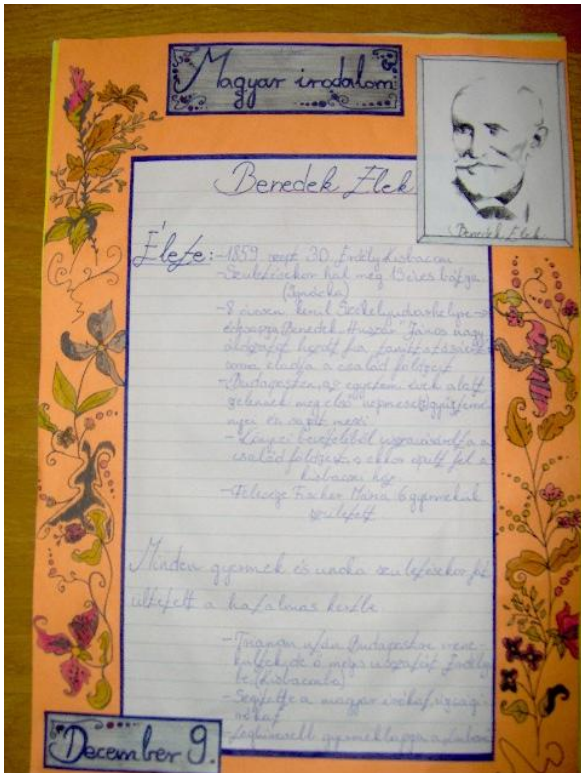 Magyar irodalom
Benedek Elek
Benedek Elek
Élete: -1859 szept 30. Erdély Kisbacon
-Születésekor hal meg 15 éves bátyja
(Ignácka)
-8 évesen kerül Székelyudvarhelyre
édesapja Benedek "Huszár" János nagy
fia
eladja a család földjeit
-Budapesten, az egyetem évek alatt
jelennek meg első népmese gyűjtemé
nyei és saját meséi
-Könyvei bevételéből visszavásárolta a
család földjeit s ekkor épült fel a
kisbaconi ház
-Felesége Fischer Mária 6 gyermekük
született
Minden gyermek és unoka születésekor fát
ültetett a hatalmas kertbe
-Trianon után Budapestre mene
külhetett de ő mégis Erdély
be (Kisbaconba)
-Segítette a magyar írókat
-Leghíresebb gyermeklapja a
December 9.